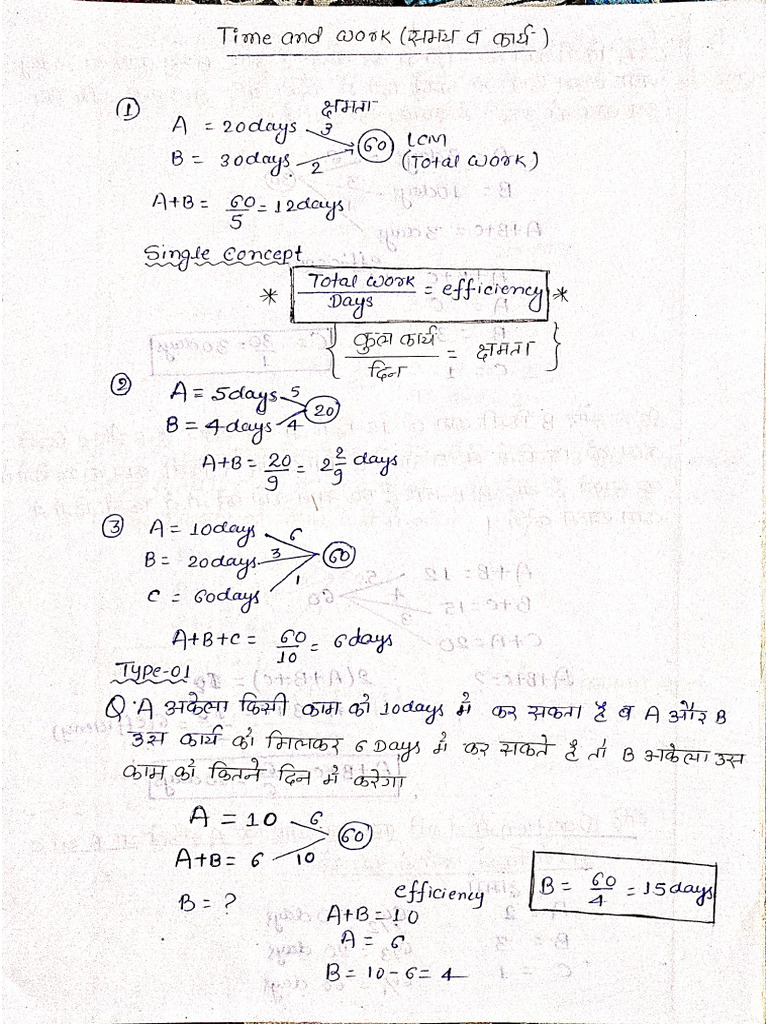 Time and work (समय व कार्य)
①
क्षमता
A = 20days 3
60 LCM
B = 30days 2
(Total work)
A+B = 60/5 = 12days
Single Concept
* Total work/Days = efficiency *
{ कुल कार्य/दिन = क्षमता }
②
A = 5days 5
20
B = 4days 4
A+B = 20/9 = 2 2/9 days
③ A = 10days 6
B = 20days 3 60
C = 60days 1
A+B+C = 60/10 = 6days
Type-01
Q. A अकेला किसी काम को 10days में कर सकता है व A और B
उस कार्य को मिलकर 6 Days में कर सकते है तो B अकेला उस
काम को कितने दिन में करेगा
A = 10 6
60
A+B = 6 10
B = ?
efficiency
A+B = 10
A = 6
B = 10-6 = 4
B = 60/4 = 15days